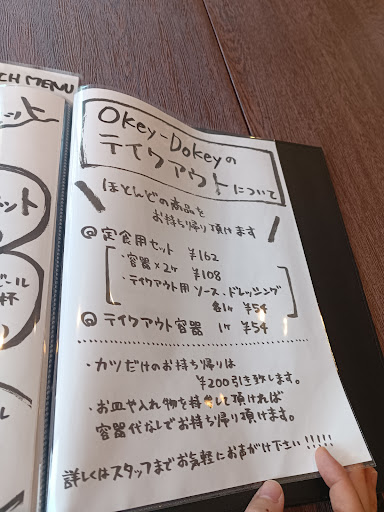 CH MENU
Okey-Dokeyの
テイクアウトについて
ほとんどの商品を
お持ち帰り頂けます
@ 定食用セット ¥162
・容器×2ヶ ¥108
・テイクアウト用 ソース、ドレッシング
各1ヶ ¥54
@ テイクアウト容器 1ヶ ¥54
・カツだけのお持ち帰りは
¥200引き致します。
・お皿や入れ物を持参して頂ければ
容器代なしでお持ち帰り頂けます。
詳しくはスタッフまでお気軽にお声がけ下さい!!!!!
ット
ビール
杯
ル